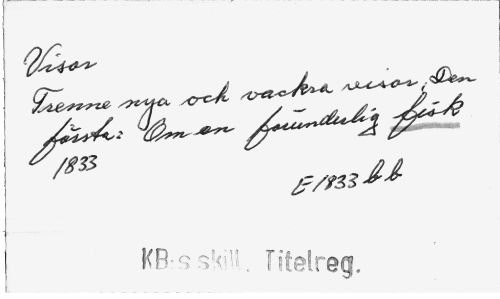 Visor
Trenne nya och vackra visor, Den
första: Om en förunderlig fisk
1833
E 1833 b b
KB:s skill. Titelreg.